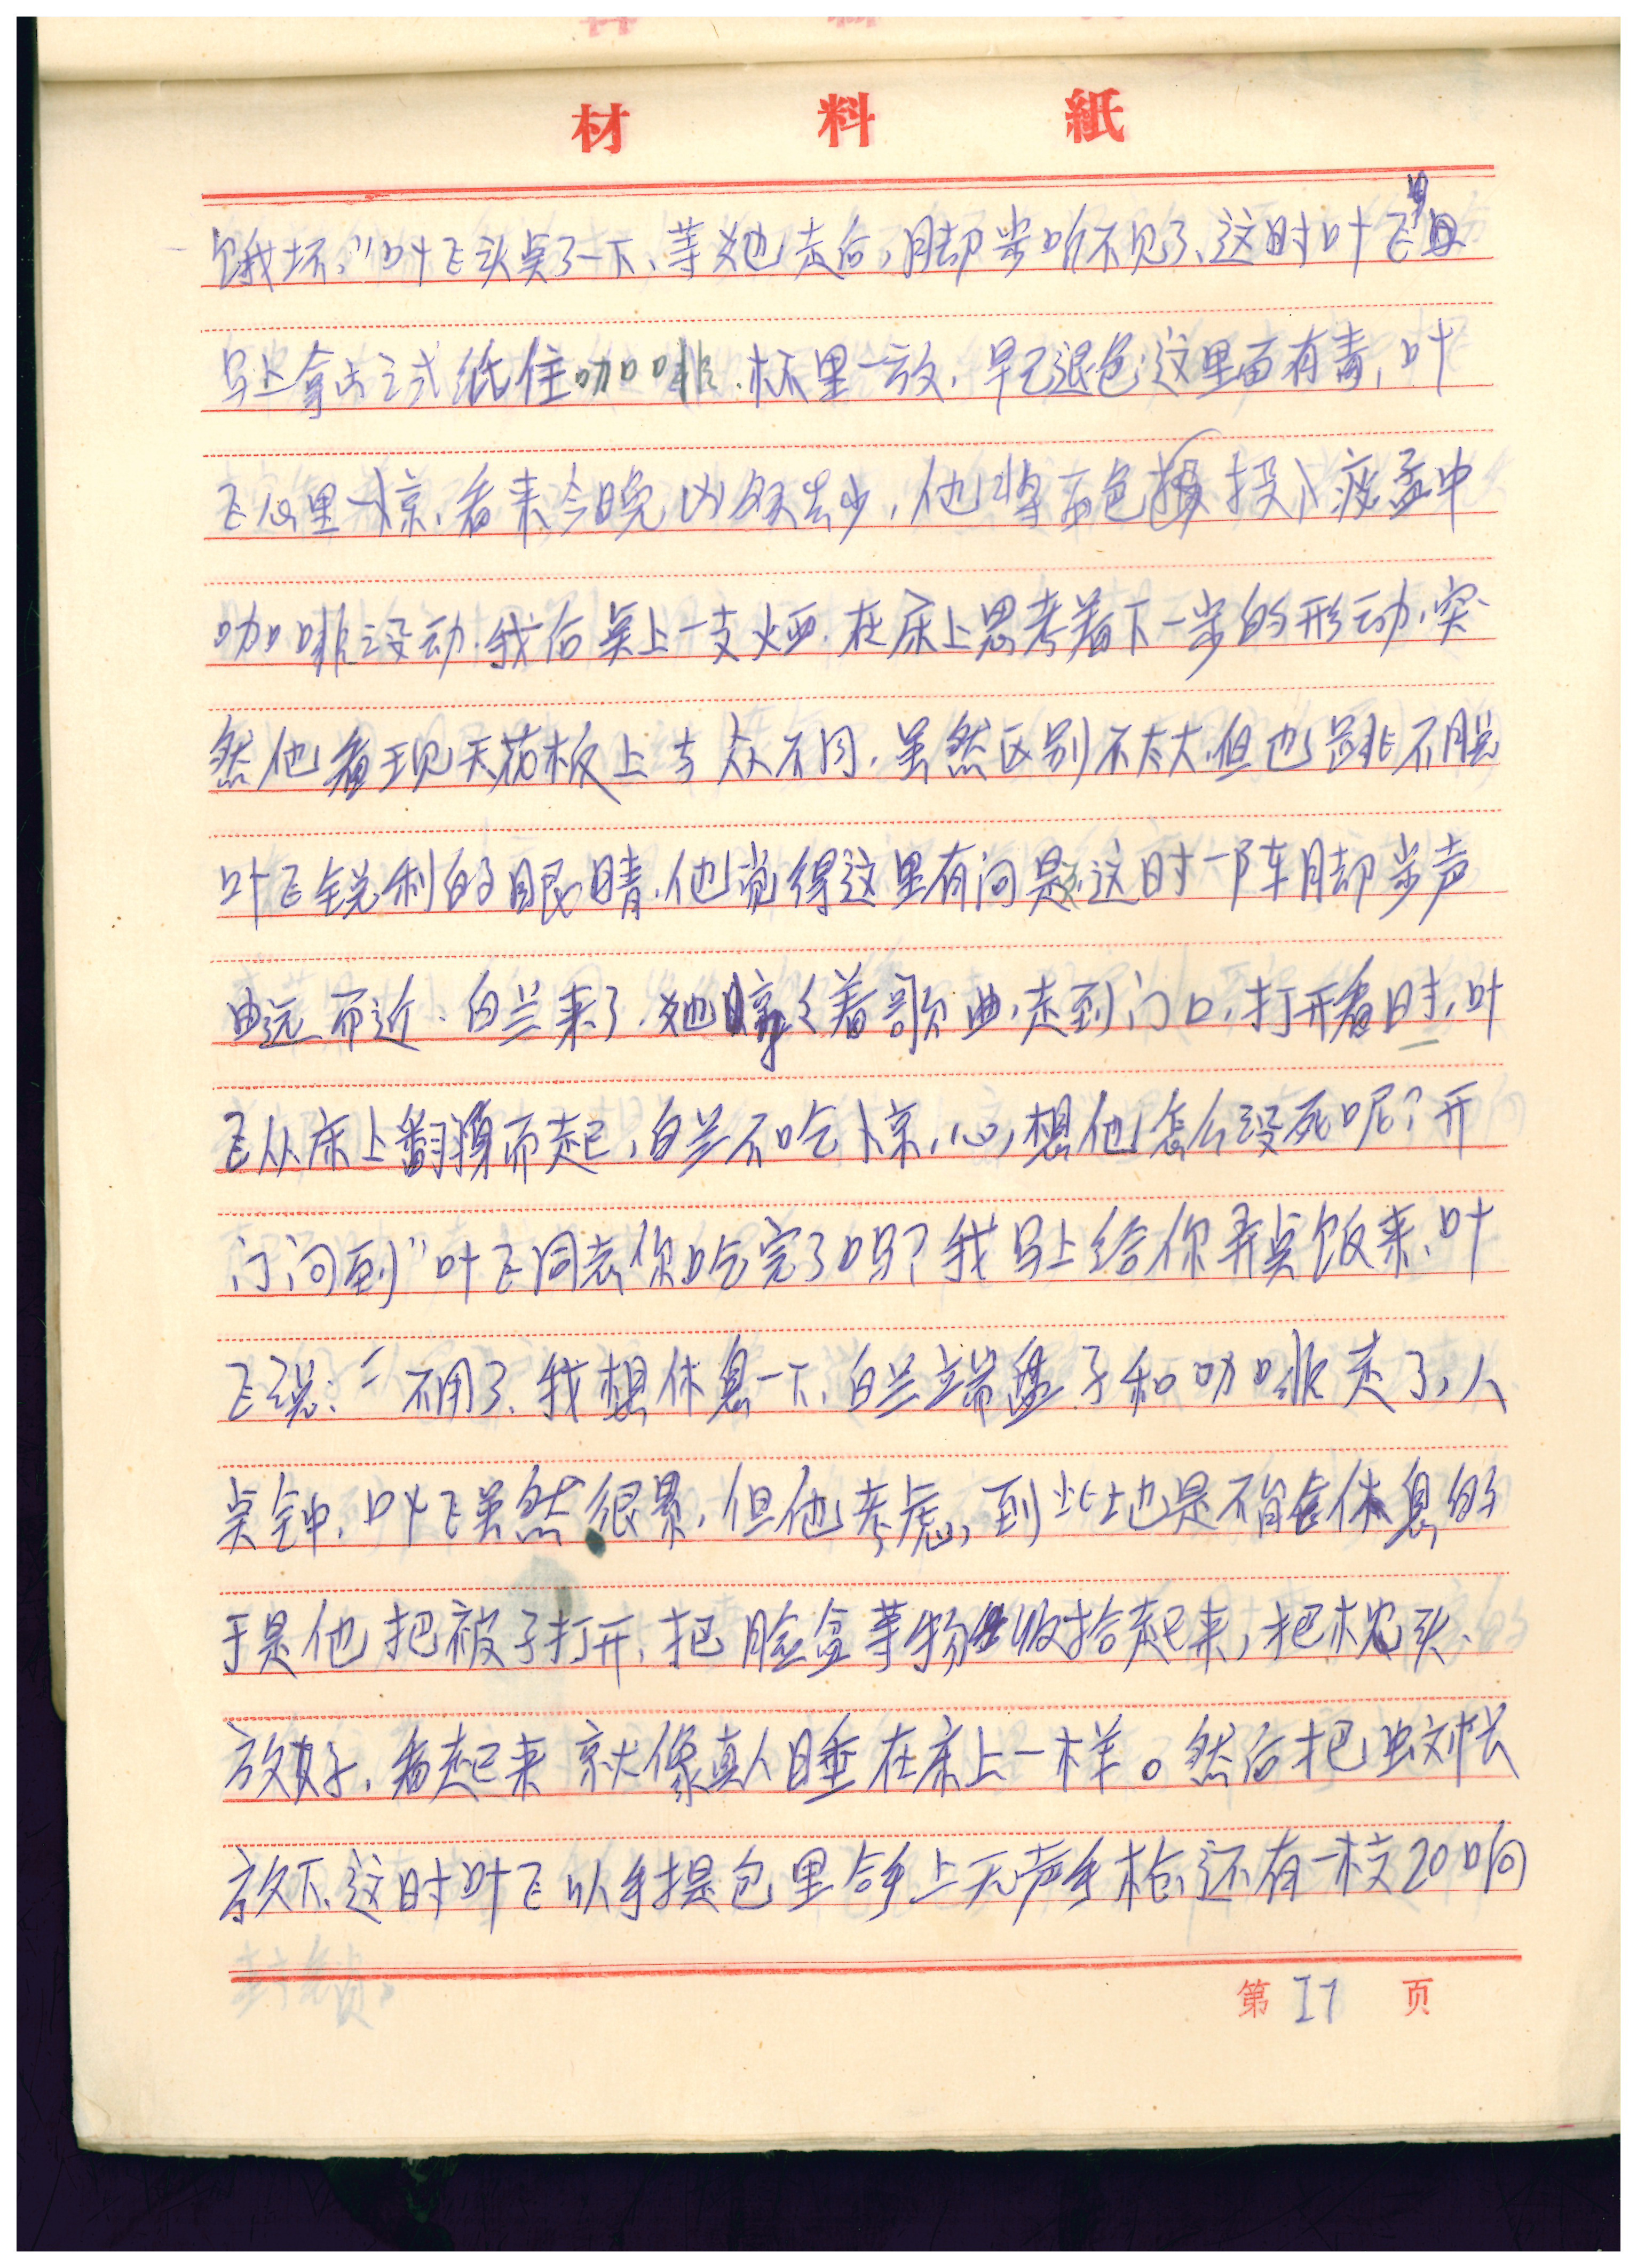 材料紙
饿坏,"叶飞头点了一下、等她走后,脚步听不见了、这时叶飞
马上拿出试纸住咖啡.杯里一放,早已退色这里面有毒,叶
飞心里一惊,看来今晚凶多吉少,他将 投入痰盂中
咖啡没动.我后点上一支烟.在床上思考着下一步的形动,突
然他看现天花板上与众不同.虽然区别不太大.但也跳不脱
叶飞锐利的眼睛.他觉得这里有问题.这时一阵脚步声
由远而近.白兰来了.她哼着歌曲,走到门口,打开看时,叶
飞从床上翻身而起,白兰不吃惊,心想他怎么没死呢?开
门问到"叶飞同志你吃完了吗?我马上给你弄点饭来、叶
飞说:"不用了.我想休息一下.白兰端盘子和咖啡走了,人
点钟,叶飞虽然很累,但他考虑,到此地是不能休息的
于是他把被子打开,把脸盆等物收拾起来,把枕头、
放好,看起来就像真人睡在床上一样。然后把蚊帐
放下.这时叶飞从手提包里拿上无声手枪,还有一支20响
第17页